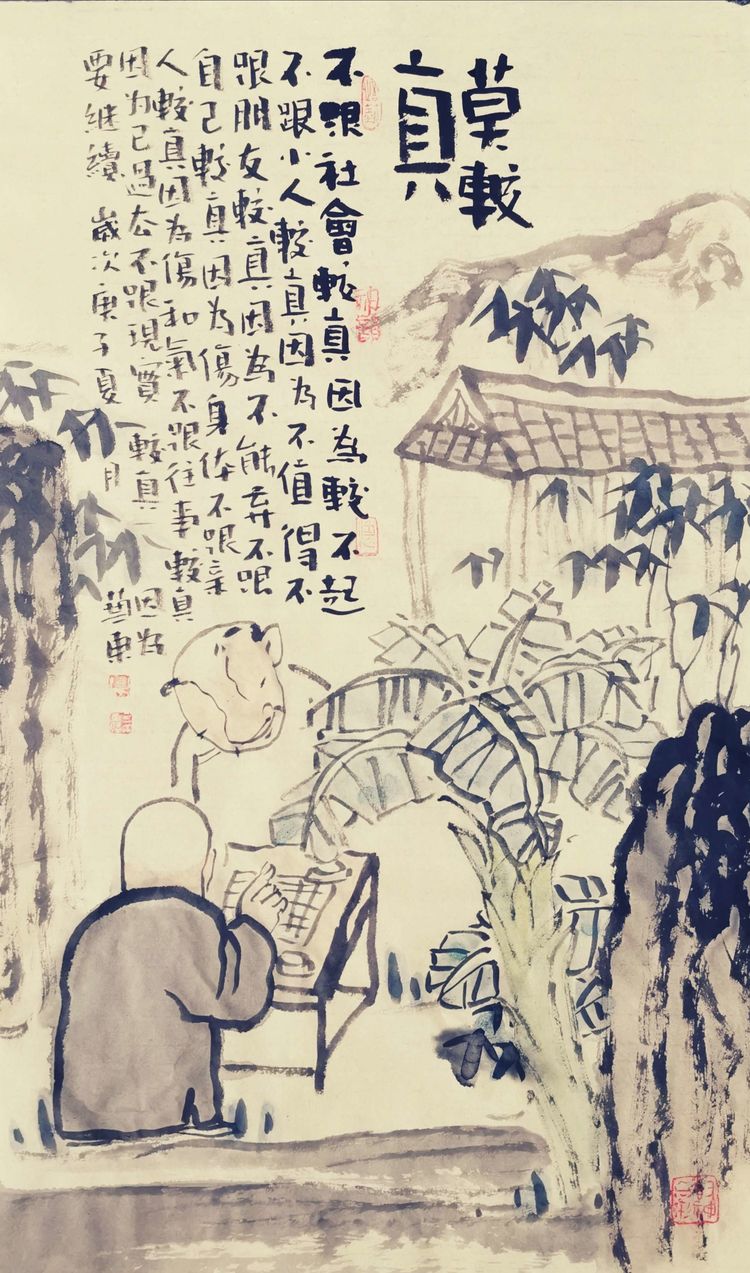 莫較
真
不跟社會較真因為較不起
不跟小人較真因为不值得不
跟朋友較真因為不能弃不跟
自己較真因为傷身体不跟亲
人較真因为傷和氣不跟往事較真
因为已過去不跟現實較真因为
要继續 歲次庚子夏月 藝東